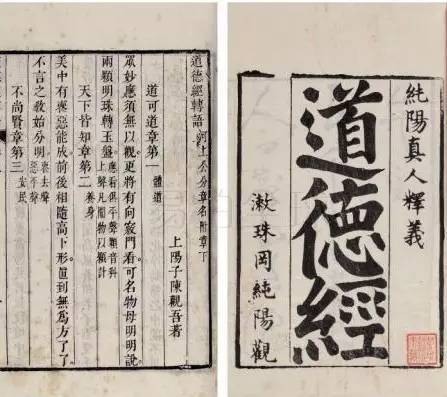 純陽真人釋義
道德經
漱珠岡純陽觀
道德經轉語 河上公分章名附章下
上陽子陳觀吾著
道可道章第一 體道
眾妙應須無以觀更將有向竅門看可名物母明明說
兩顆明珠轉玉盤 應看俱平聲顆音科上聲凡圓物以顆計
天下皆知章第二 養身
美中有喪惡能成前後相隨高下形直到無為方了了
不言之教始分明 喪去聲惡平聲
不尚賢章第三 安民